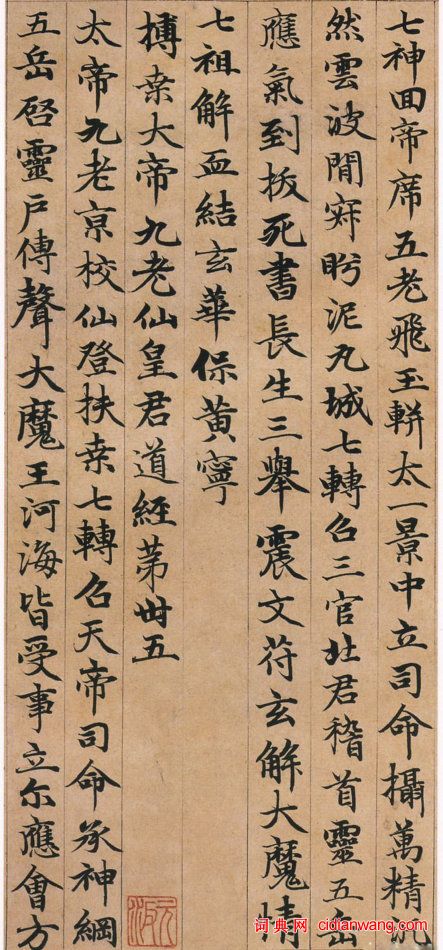 七神回帝席五老飛玉軿太一景中立司命攝萬精
然雲波閒寂眄泥丸城七轉召三官北君稽首靈五
應氣到拔死書長生三舉震文符玄解大魔情
七祖解血結玄華保黃寧
搏桒大帝九老仙皇君道經苐丗五
太帝九老京校仙登扶桒七轉召天帝司命承神綱
五岳啓靈戶傳聲大魔王河海皆受事立尒應會方
词典网 cidianwang.com